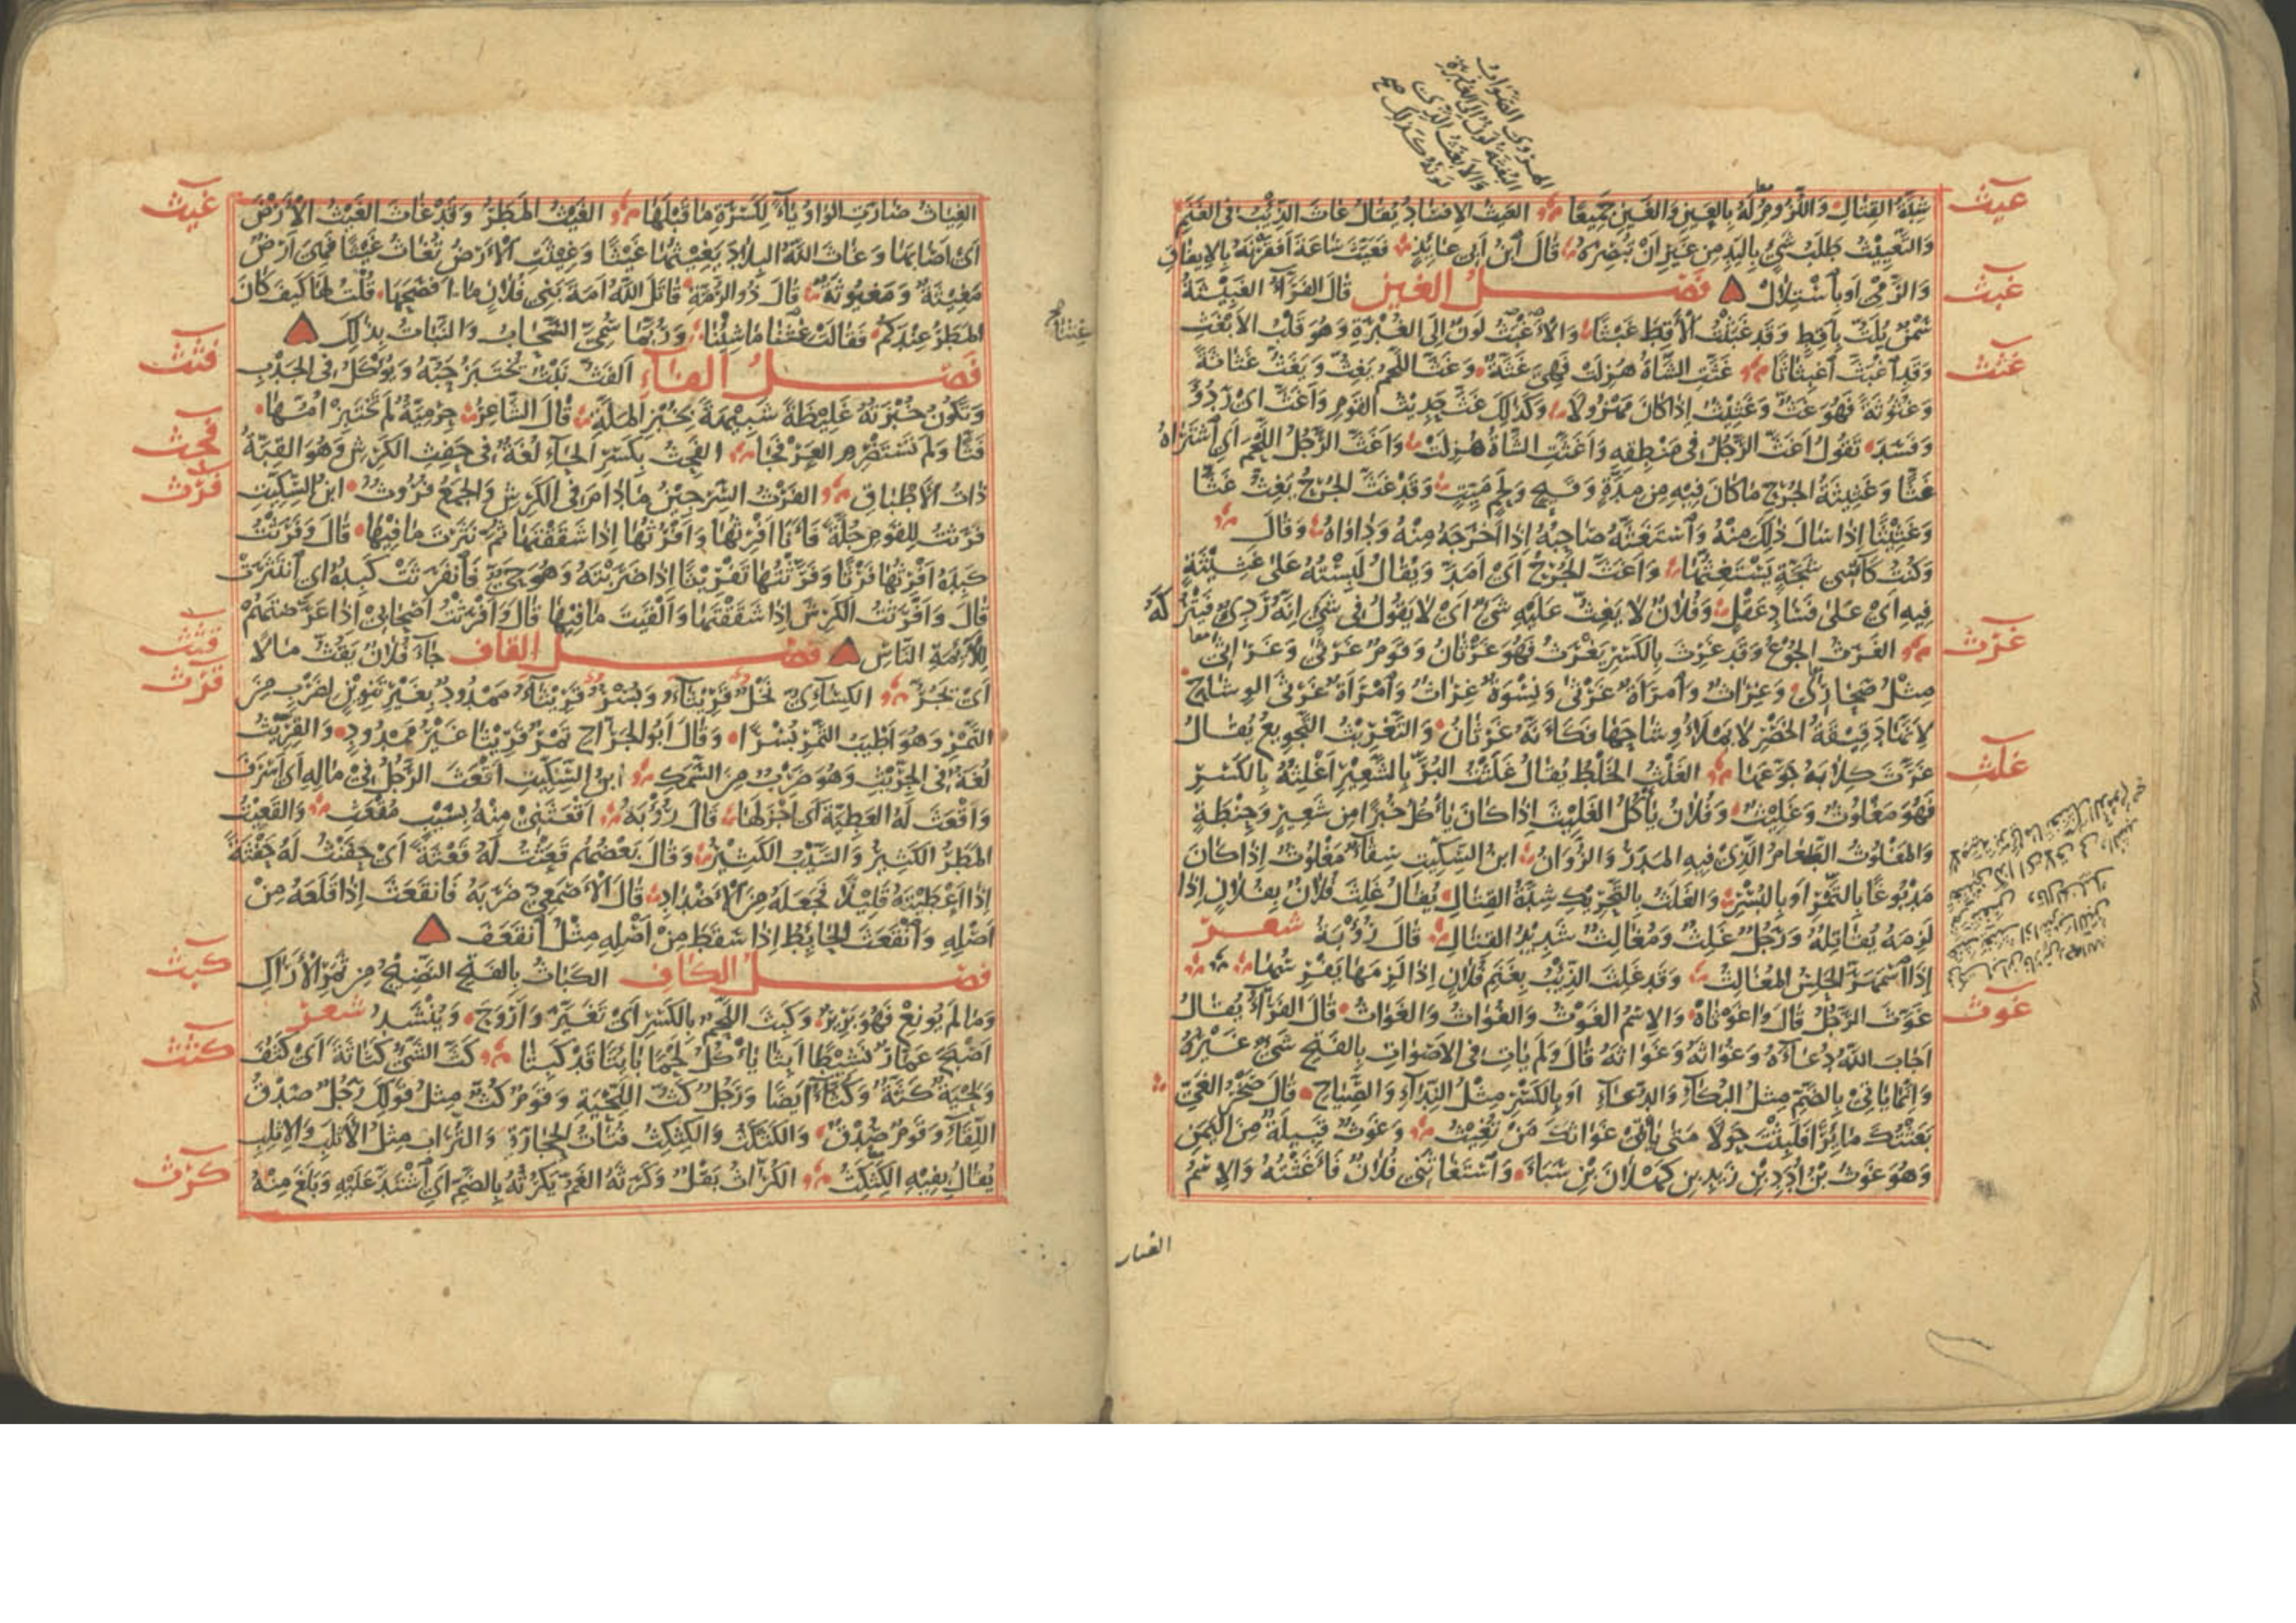 الهروي الصواب
البغثة لون إلى الغبرة
والأبغث الذي
لونه كذلك صح
عيث
شدة القتال واللزوم له بالعين والغين جميعا العيث الإفساد يقال عاث الذئب في الغنم
والتعييث طلب شيء باليد من غير أن يبصره قال ابن أبي عائذ فعيث ساعة أفقرنه بالإيفاق
غبث
والرمي أو باستلال فصل الغين قال الفراء الغبيثة
سمن يلت بأقط وقد غبثت الأقط غبثا والأغبث لون إلى الغبرة وهو قلب الأبغث
غثث
وقد اغبث اغبثاثا غثت الشاة هزلت فهي غثة وغث اللحم يغث ويغث غثاثة
وغثوثة فهو غث وغثيث إذا كان مهزولا وكذلك غث حديث القوم وأغث أي ردؤ
وفسد تقول أغث الرجل في منطقه وأغثت الشاة هزلت وأغث الرجل اللحم أي اشتراه
غثا وغثيثة الجرح ما كان فيه من مدة وقيح ولحم ميت وقد غث الجرح يغث غثا
وغثيثا إذا سال ذلك منه واستغثه صاحبه إذا أخرجه منه وداواه وقال
وكنت كآسي شجة يستغثها وأغث الجرح أي أمد ويقال لبسته على غثيثة
فيه أي على فساد عقل وفلان لا يغث عليه شيء أي لا يقول في شيء إنه رديء فيتركه
غرث
الغرث الجوع وقد غرث بالكسر يغرث فهو غرثان وقوم غرثى وغراثى
مثل صحارى وغراث وامرأة غرثى ونسوة غراث وامرأة غرثى الوشاح
لأنها دقيقة الخصر لا يملأ وشاحها فكأنه غرثان والتغريث التجويع يقال
غلث
غرث كلابه جوعها الغلث الخلط يقال غلثت البر بالشعير أغلثه بالكسر
فهو مغلوث وغليث وفلان يأكل الغليث إذا كان يأكل خبزا من شعير وحنطة
والمغلوث الطعام الذي فيه المدر والزوان ابن السكيت سقاء مغلوث إذا كان
مدبوغا بالتمر أو بالبسر والغلث بالتحريك شدة القتال يقال غلث فلان بفلان إذا
لزمه يقاتله ورجل غلث ومغالث شديد القتال قال رؤبة شعر
إذا اسمهر الحلس المغالث وقد غلث الذئب بغنم فلان إذا لزمها يفرسها
غوث
غوث الرجل قال واغوثاه والاسم الغوث والغواث والغواث قال الفراء يقال
أجاب الله دعاءه وغواثه وغواثه قال ولم يأت في الأصوات بالفتح شيء غيره
وإنما يأتي بالضم مثل البكاء والدعاء أو بالكسر مثل النداء والصياح قال صخر الغي
بعثتك مائرا فلبثت حولا متى يأتي غواثك من تغيث وغوث قبيلة من اليمن
وهو غوث بن أدد بن زيد بن كهلان بن سبأ واستغاثني فلان فأغثته والاسم
غيث
الغياث صارت الواو ياء لكسرة ما قبلها الغيث المطر وقد غاث الغيث الأرض
أي أصابها وغاث الله البلاد يغيثها غيثا وغيثت الأرض تغاث غيثا فهي أرض
مغيثة ومغيوثة قال ذو الرمة قاتل الله أمة بني فلان ما أفصحها قلت لها كيف كان
المطر عندكم فقالت غثنا ما شئنا وربما سمي السحاب والنبات بذلك
غثنا صح
فثث
فصل الفاء الفث نبت يختبز حبه ويؤكل في الجدب
وتكون خبزته غليظة شبيهة بخبز الملة قال الشاعر حرمية لم تختبز أمها
فحث
فثا ولم تستضرم العرفجا الفحث بكسر الحاء لغة في حفث الكرش وهو القبة
فرث
ذات الأطباق الفرث السرجين مادام في الكرش والجمع فروث ابن السكيت
فرثت للقوم جلة فأنا أفرثها وأفرثها إذا شققتها ثم نثرت ما فيها قال وفرثت
كبده أفرثها فرثا وفرثتها تفريثا إذا ضربته وهو حي فانفرثت كبده أي انتثرت
قال وأفرثت الكرش إذا شققتها وألقيت ما فيها قال وأفرثت أصحابي إذا عرضتهم
قثث
للائمة الناس فصل القاف جاء فلان يقث مالا
قرث
أي يجر الكسائي نخل قريثاء وبسر قريثاء ممدود بغير تنوين لضرب من
التمر وهو أطيب التمر بسرا وقال أبو الجراح تمر قريثا غير ممدود والقريث
لغة في الجريث وهو ضرب من السمك ابن السكيت أقعث الرجل في ماله أي أسرف
وأقعث له العطية أي أجزلها قال رؤبة أقعثني منه بسيب مقعث والقعيث
المطر الكثير والسيب الكثير وقال بعضهم قعثت له قعثة أي حفنت له حفنة
إذا أعطيته قليلا فجعله من الأضداد قال الأصمعي ضربه فانقعث إذا قلعه من
أصله وانقعث الحائط إذا سقط من أصله مثل انقعف
كبث
فصل الكاف الكباث بالفتح النضيج من ثمر الأراك
وما لم يونع فهو برير وكبث اللحم بالكسر أي تغير وأروح وينشد شعر
كثث
أصبح عمار نشيطا أبثا يأكل لحما بائتا قد كبثا كث الشيء كثاثة أي كثف
ولحية كثة وكثاء أيضا ورجل كث اللحية وقوم كث مثل قولك رجل صدق
اللقاء وقوم صدق والكثكث والكثكث فتات الحجارة والتراب مثل الأثلب والإثلب
كرث
يقال بفيه الكثكث الكراث بقل وكرثه الغم يكرثه بالضم أي اشتد عليه وبلغ منه